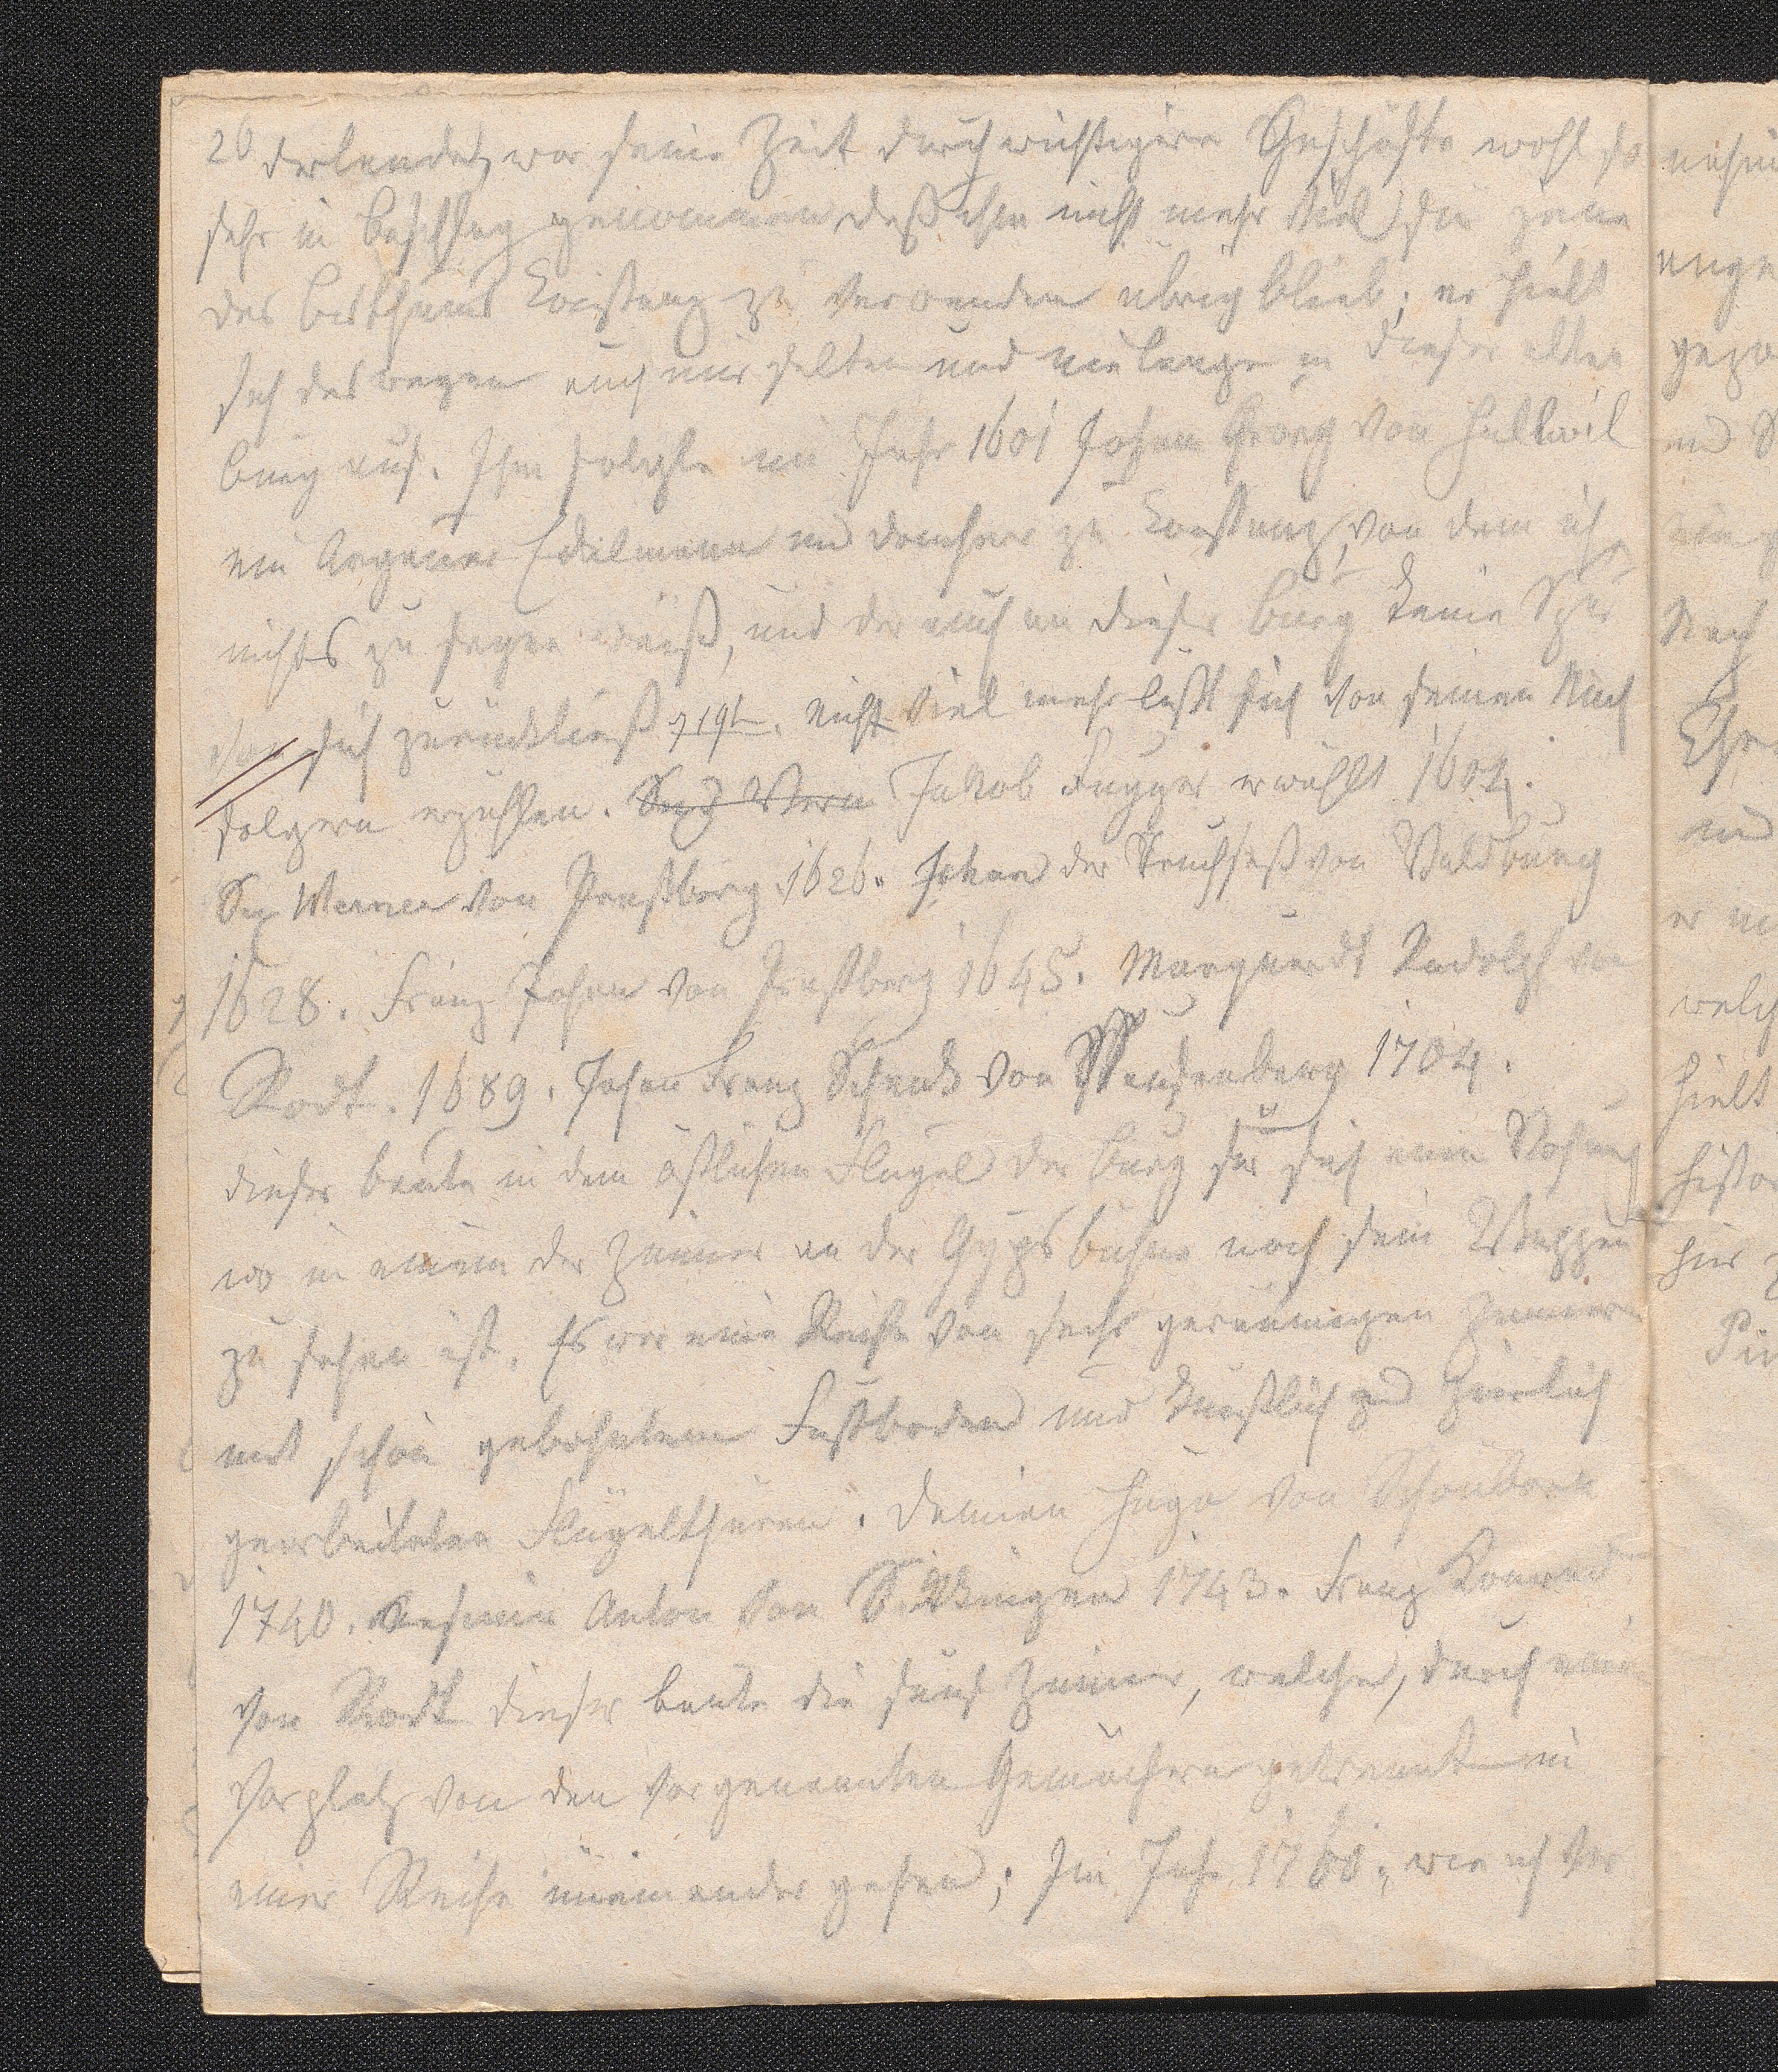 26 derlande, war seine Zeit durch wichtigere Geschäfte wohl so
sehr in Beschlag genommen daß ihm nicht mehr viel für jene
des Bisthums Konstanz zu verwenden übrig blieb; er hielt
sich deswegen auch nur selten und nie lange in dieser alten
Burg auf. Ihm folgte im Jahr 1601 Johan Georg von Hallwil
ein Argauer Edelmann und Domherr zu Konstanz, von dem ich
nichts zu sagen weiß, und der auch an dieser Burg keine Spur
von sich zurückließ. Nicht viel mehr läßt sich von seinen Nach
folgern erzählen. Jakob Fugger erwählt 1604.
Six Werner von Praßberg 1626. Johan der Truchseß von Waldburg
1628. Franz Johan von Praßberg 1645. Marquardt Rudolph von
Rodt. 1689. Johan Franz Schenk von Stauffenberg 1704.
dieser baute in dem östlichen Flügel der Burg für sich eine Wohnung
wo in einem der Zimmer an der Gypsbühne noch sein Wappen
zu sehen ist. Es war eine Reihe von sechs geräumigen Zimmern
mit schön gebohntem Fußboden und künstlich und zierlich
gearbeiteten Flügelthüren. Damian Hugo von Schönborn
1740. Kasimir Anton von Sikkingen 1743. Franz Konrad
von Rodt dieser baute die fünf Zimmer, welche, durch einen
Vorplatz von den vorgenannten Gemächern getrennt in
einer Reihe in einander gehen; Im Jahr 1760, wie ich ver